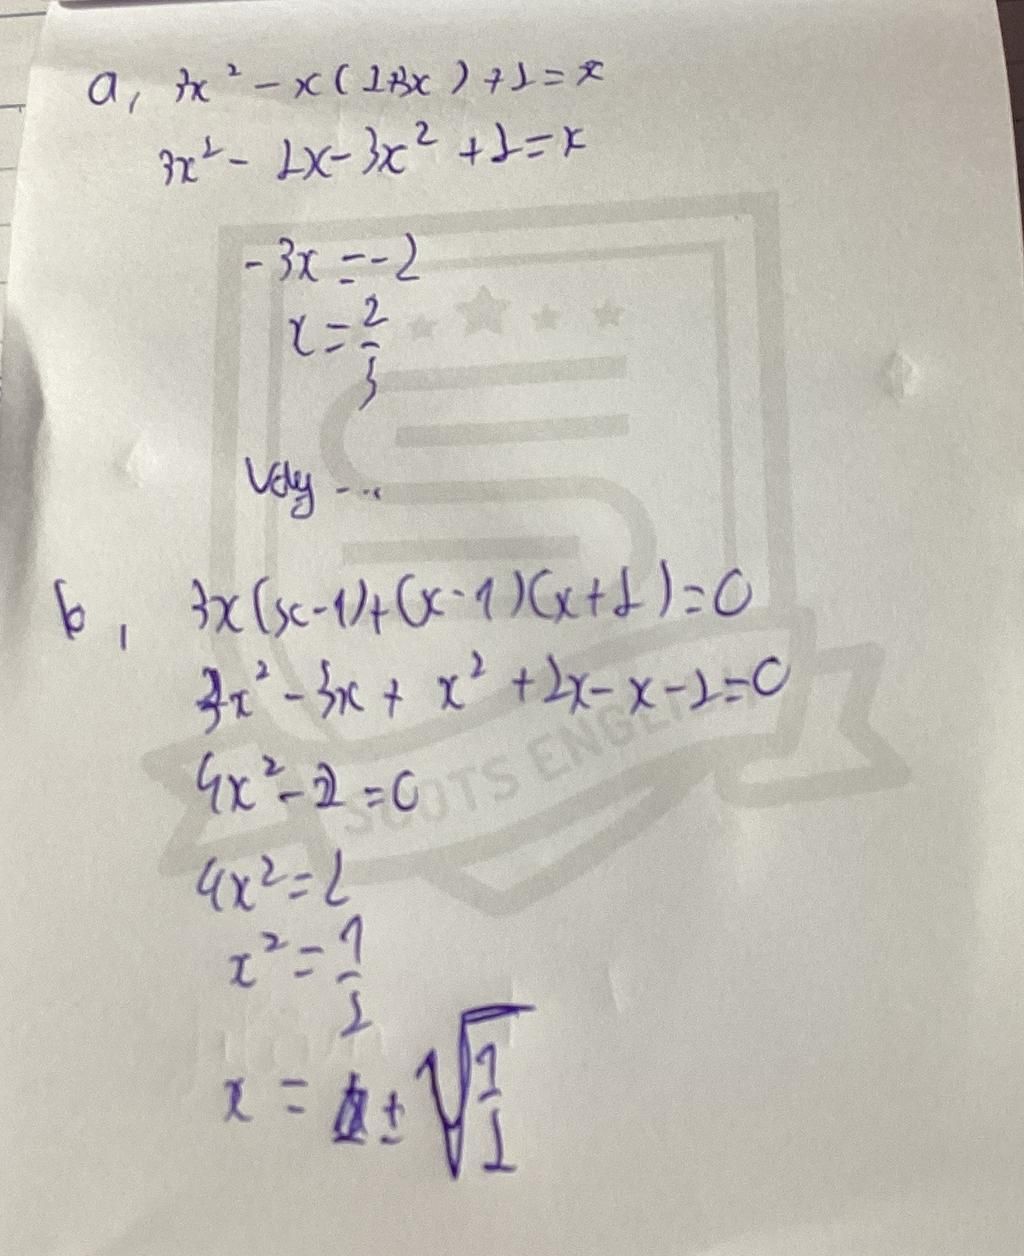 a, 3x² - x(2+3x) + 2 = x
3x² - 2x - 3x² + 2 = x
-3x = -2
x = 2/3
Vậy ...
b, 3x(x-1)+(x-1)(x+2)=0
3x² - 3x + x² + 2x - x - 2 = 0
4x² - 2 = 0
4x² = 2
x² = 1/2
x = ± √(1/2)
SCOTS ENGL